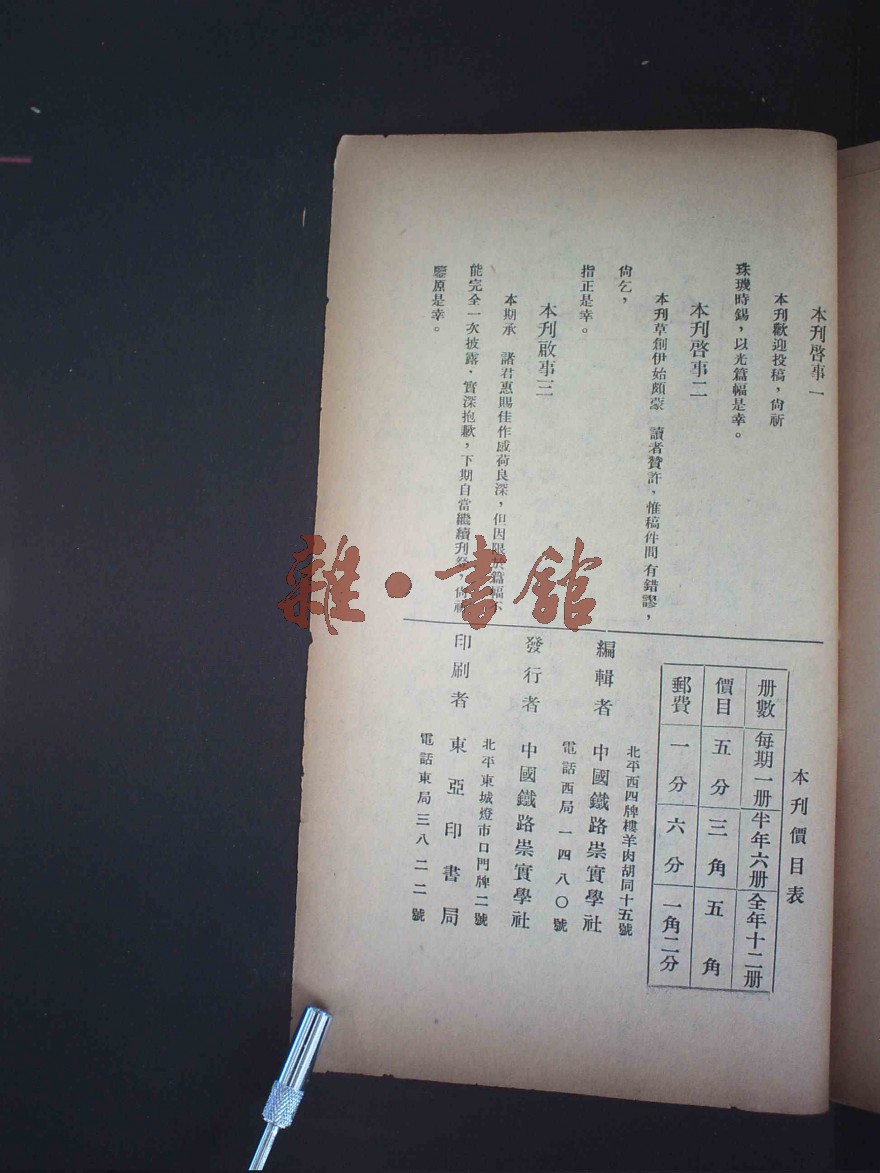 本刋啓事一
本刋歡迎投稿，尙祈
珠璣時錫，以光篇幅是幸。
本刋啓事二
本刋草創伊始頗蒙　讀者贊許，惟稿件間有錯謬，
尙乞，
指正是幸。
本刋啟事三
本期承　諸君惠賜佳作感荷良深，但因限於篇幅不
能完全一次披露，實深抱歉，下期自當繼續刋登，尙祈
鑒原是幸。
本刋價目表
册數　每期一册　半年六册　全年十二册
價目　五分　三角　五角
郵費　一分　六分　一角二分
北平西四牌樓羊肉胡同十五號
編輯者　中國鐵路崇實學社
電話西局一四八〇號
發行者　中國鐵路崇實學社
北平東城燈市口門牌二號
印刷者　東亞印書局
電話東局三八二二號
雜·書館